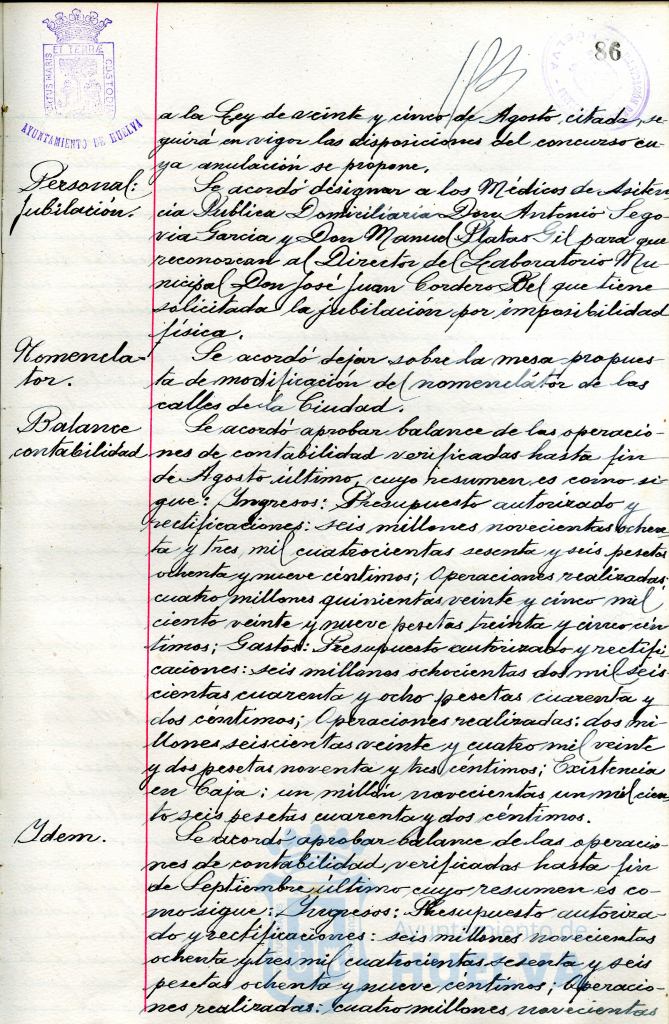 86
PORTUS MARIS ET TERRAE CUSTODIA
AYUNTAMIENTO DE HUELVA
a la Ley de veinte y cinco de Agosto citada, se-
guirá en vigor las disposiciones del concurso cu-
ya anulación se propone.
Personal:
Jubilación.
Se acordó designar a los Médicos de Asiten-
cia Publica Domiciliaria Don Antonio Sego-
via García y Don Manuel Platas Gil para que
reconozcan al Director del Laboratorio Mu-
nicipal Don José Juan Cordero Bel que tiene
solicitada la jubilación por imposibilidad
física.
Nomencla-
tor.
Se acordó dejar sobre la mesa propues-
ta de modificación del nomenclátor de las
calles de la Ciudad.
Balance
contabilidad
Se acordó aprobar balance de las operacio-
nes de contabilidad verificadas hasta fin
de Agosto último, cuyo resumen es como si-
gue: Ingresos: Presupuesto autorizado y
rectificaciones: seis millones novecientas ochen-
ta y tres mil cuatrocientas sesenta y seis pesetas
ochenta y nueve céntimos; Operaciones realizadas:
cuatro millones quinientas veinte y cinco mil
ciento veinte y nueve pesetas treinta y cinco cén-
timos; Gastos: Presupuesto autorizado y rectifi-
caciones: seis millones ochocientas dos mil seis-
cientas cuarenta y ocho pesetas cuarenta y
dos céntimos; Operaciones realizadas: dos mi-
llones seiscientas veinte y cuatro mil veinte
y dos pesetas noventa y tres céntimos; Existencia
en Caja: un millón novecientas un mil cien-
to seis pesetas cuarenta y dos céntimos.
Idem.
Se acordó aprobar balance de las operacio-
nes de contabilidad, verificadas hasta fin
de Septiembre último cuyo resumen es co-
mo sigue: Ingresos: Presupuesto autoriza-
do y rectificaciones: seis millones novecientas
ochenta y tres mil cuatrocientas sesenta y seis
pesetas ochenta y nueve céntimos; Operacio-
nes realizadas: cuatro millones novecientas
Ayuntamiento de
HUELVA